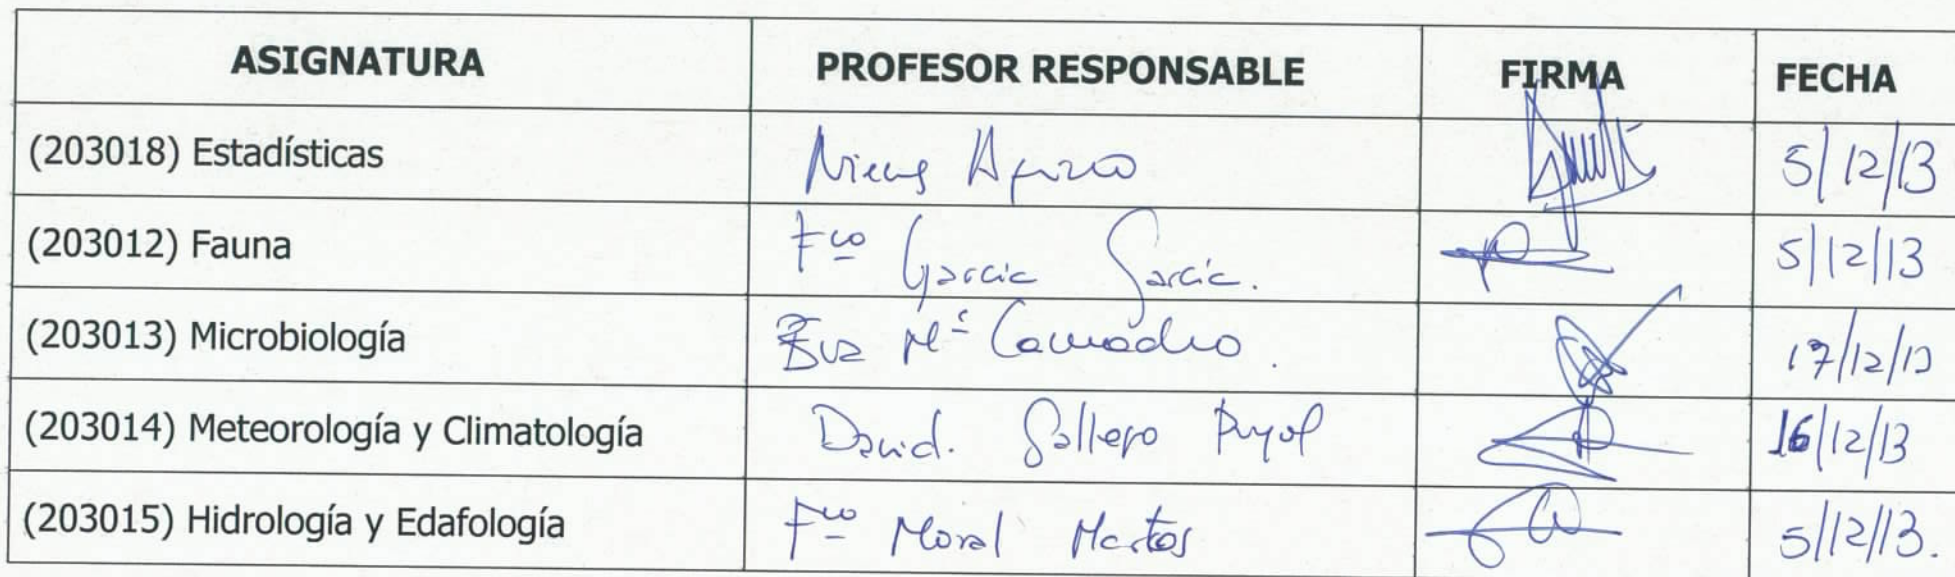 ASIGNATURA PROFESOR RESPONSABLE FIRMA FECHA
(203018) Estadísticas Nieves 5/12/13
(203012) Fauna Fco García García. 5/12/13
(203013) Microbiología Eva Mª Camacho. 17/12/13
(203014) Meteorología y Climatología David. Gallego Puyol 16/12/13
(203015) Hidrología y Edafología Fco Moral Martos 5/12/13.